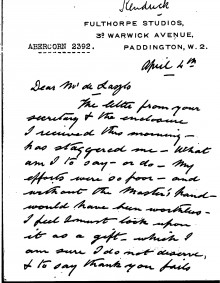 Kendrick
FULTHORPE STUDIOS,
3A WARWICK AVENUE,
ABERCORN 2392. PADDINGTON, W.2.
April 4th
Dear Mr de Laszlo
The letter from your
secretary & the enclosure
I received this morning -
has staggered me - What
am I to say - or do - My
efforts were so poor - and
without the Master's hand -
would have been worthless -
I feel I must look upon
it as a gift - which I
am sure I do not deserve,
& to say thank you fails